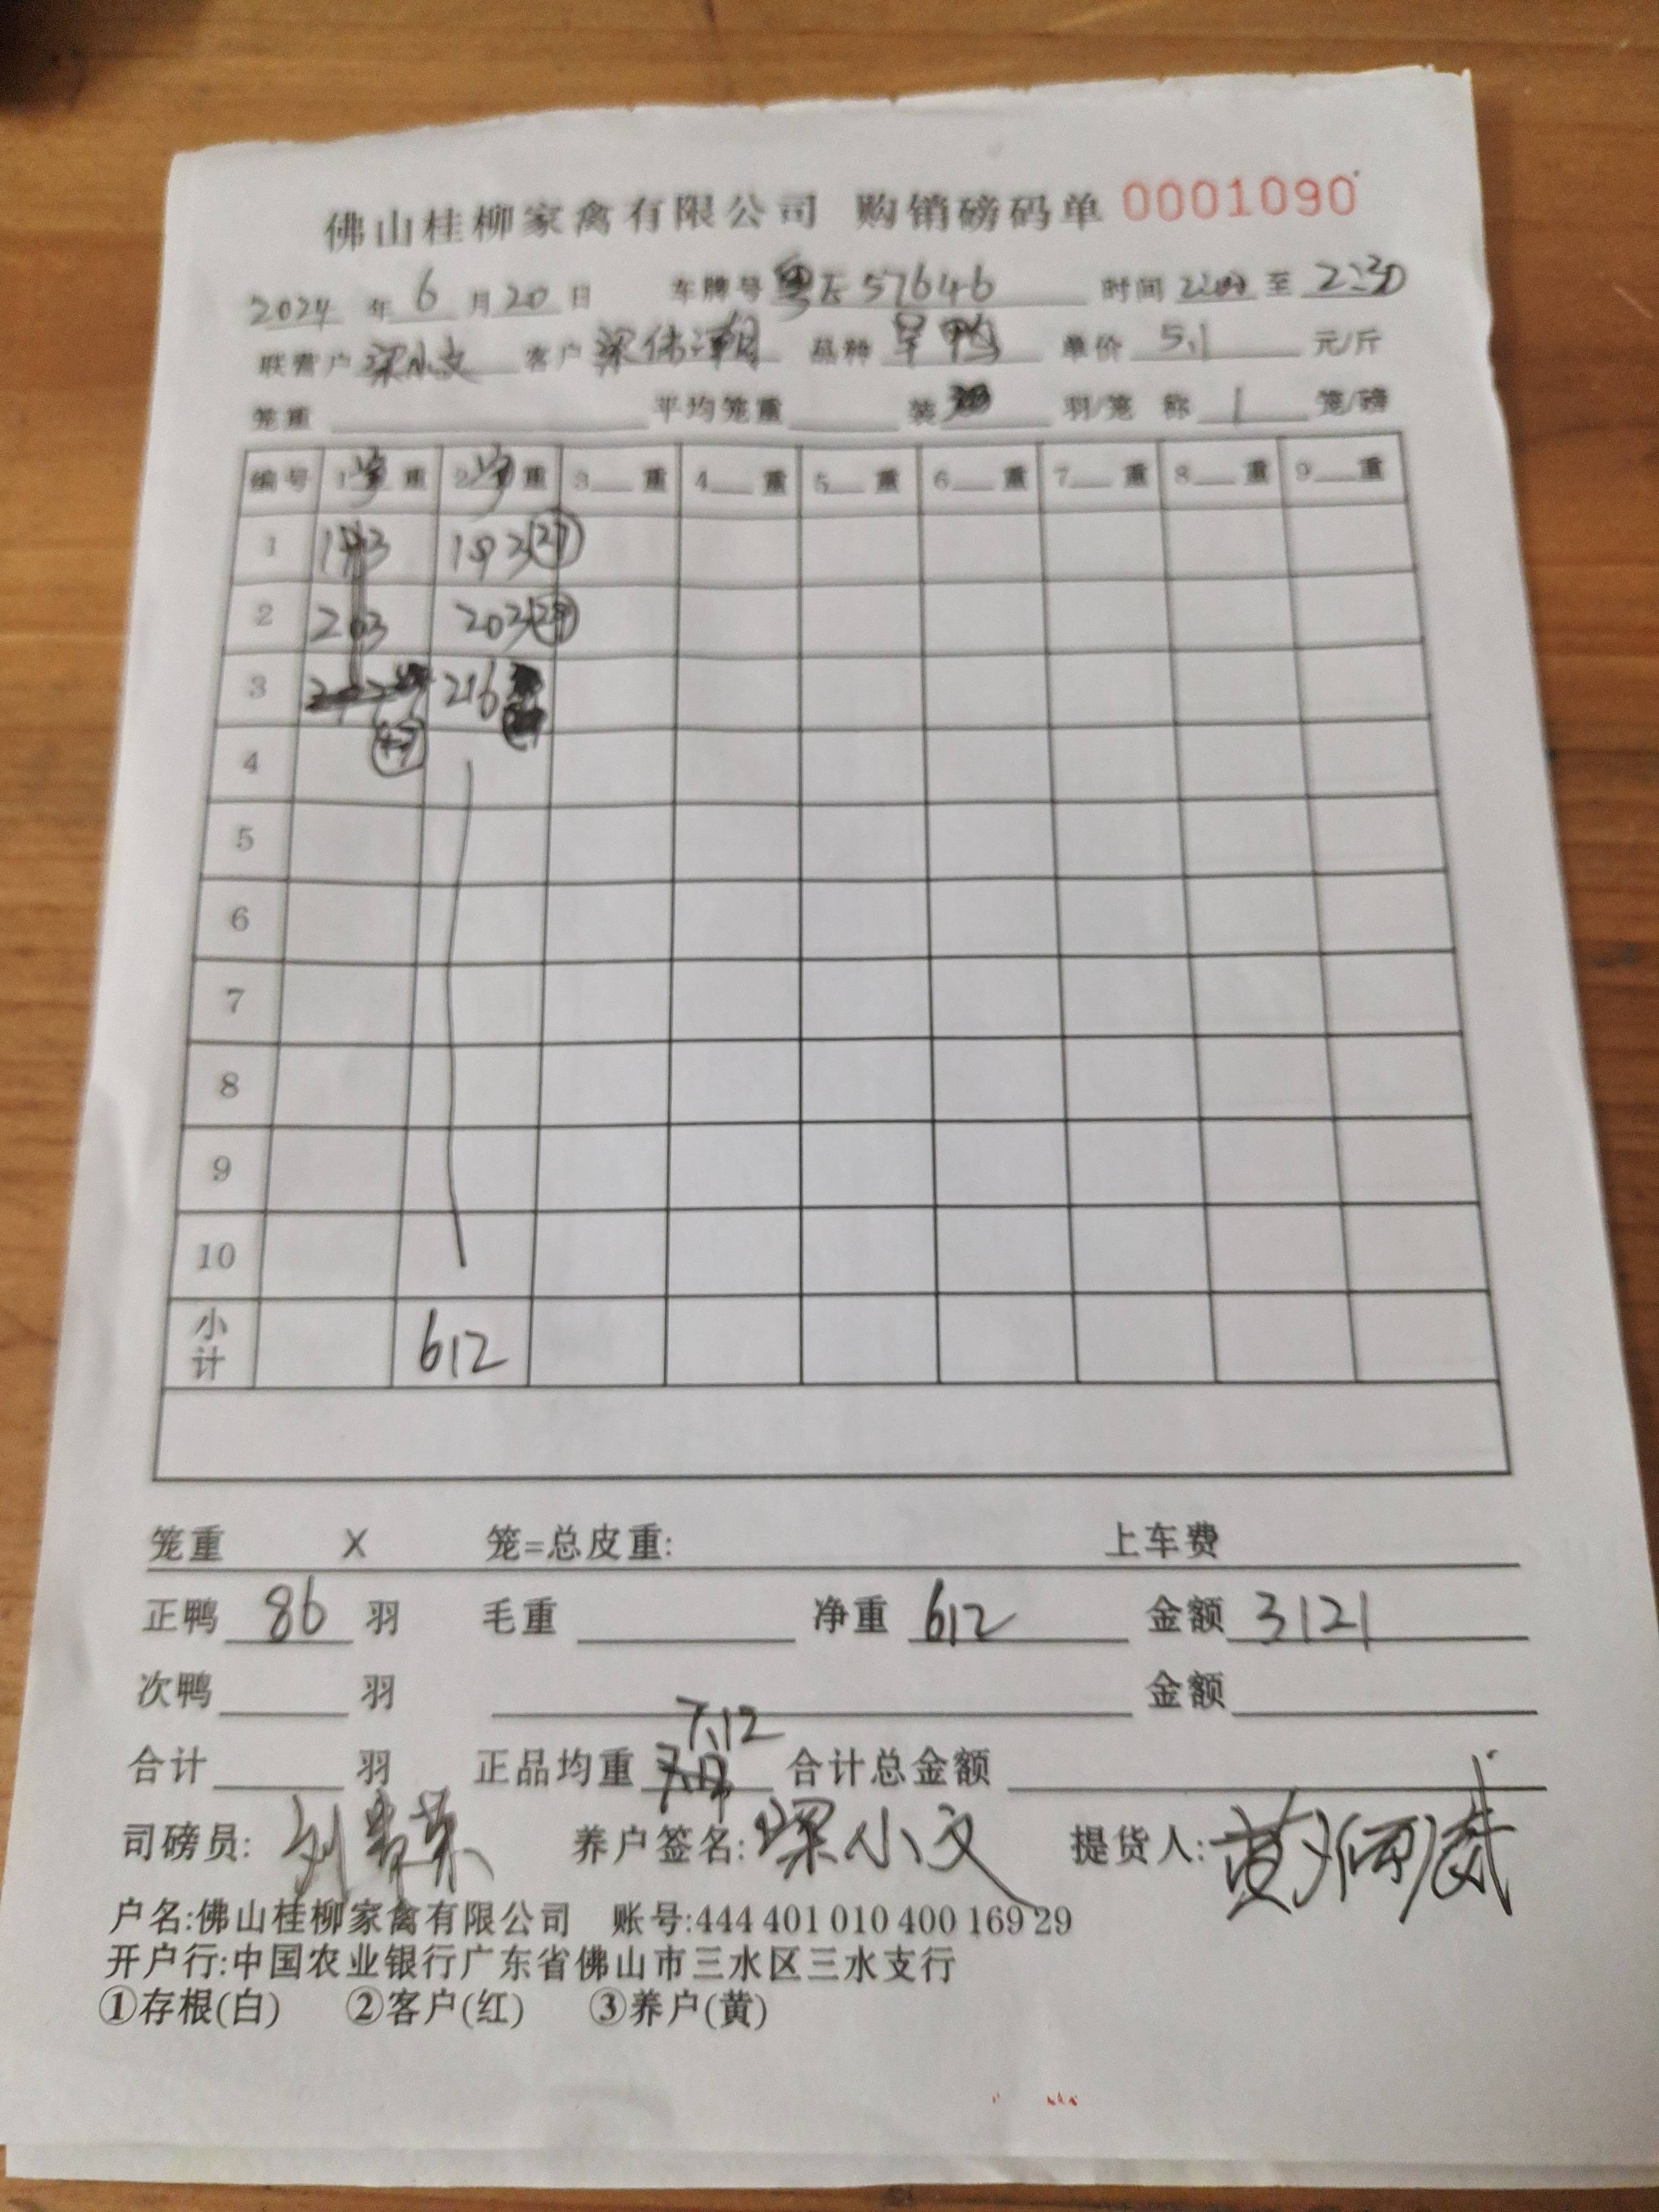 佛山桂柳家禽有限公司 购销磅码单 0001090
2024 年 6 月 20 日 车牌号 粤E 57646 时间 2:00 至 2:30
联营户 梁小文 客户 梁伟潮 品种 旱鸭 单价 5.1 元/斤
笼重 平均笼重 装 羽/笼 称 1 笼/磅
编号 1 重 2 重 3 重 4 重 5 重 6 重 7 重 8 重 9 重
1 193 193
2 203 203
3 216
4
5
6
7
8
9
10
小计 612
笼重 X 笼=总皮重: 上车费
正鸭 86 羽 毛重 净重 612 金额 3121
次鸭 羽 金额
7.12
合计 羽 正品均重 合计总金额
司磅员: 养户签名: 梁小文 提货人:
户名:佛山桂柳家禽有限公司 账号:444 401 010 400 169 29
开户行:中国农业银行广东省佛山市三水区三水支行
①存根(白) ②客户(红) ③养户(黄)